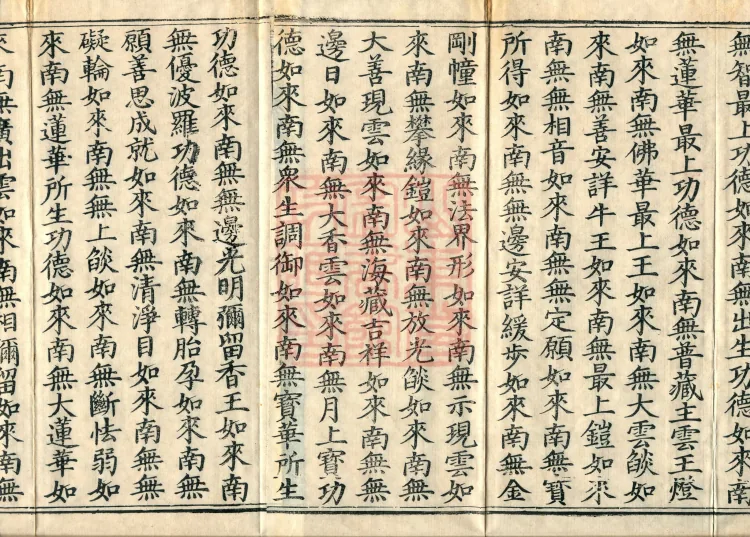 無智最上功德如來南無出生功德如來南
無蓮華最上功德如來南無普藏主雲王燈
如來南無佛華最上王如來南無大雲燄如
來南無善安詳牛王如來南無最上鎧如來
南無無相音如來南無無定願如來南無寶
所得如來南無無邊安詳緩步如來南無金
剛幢如來南無法界形如來南無示現雲如
來南無攀緣鎧如來南無放光燄如來南無
大善現雲如來南無海藏吉祥如來南無無
邊日如來南無大香雲如來南無月上寶功
德如來南無眾生調御如來南無寶華所生
功德如來南無無邊光明彌留香王如來南
無優波羅功德如來南無轉胎孕如來南無
願善思成就如來南無清淨目如來南無無
礙輪如來南無無上燄如來南無斷怯弱如
來南無蓮華所生功德如來南無大蓮華如
來南無廣出雲如來南無相彌留如來南無